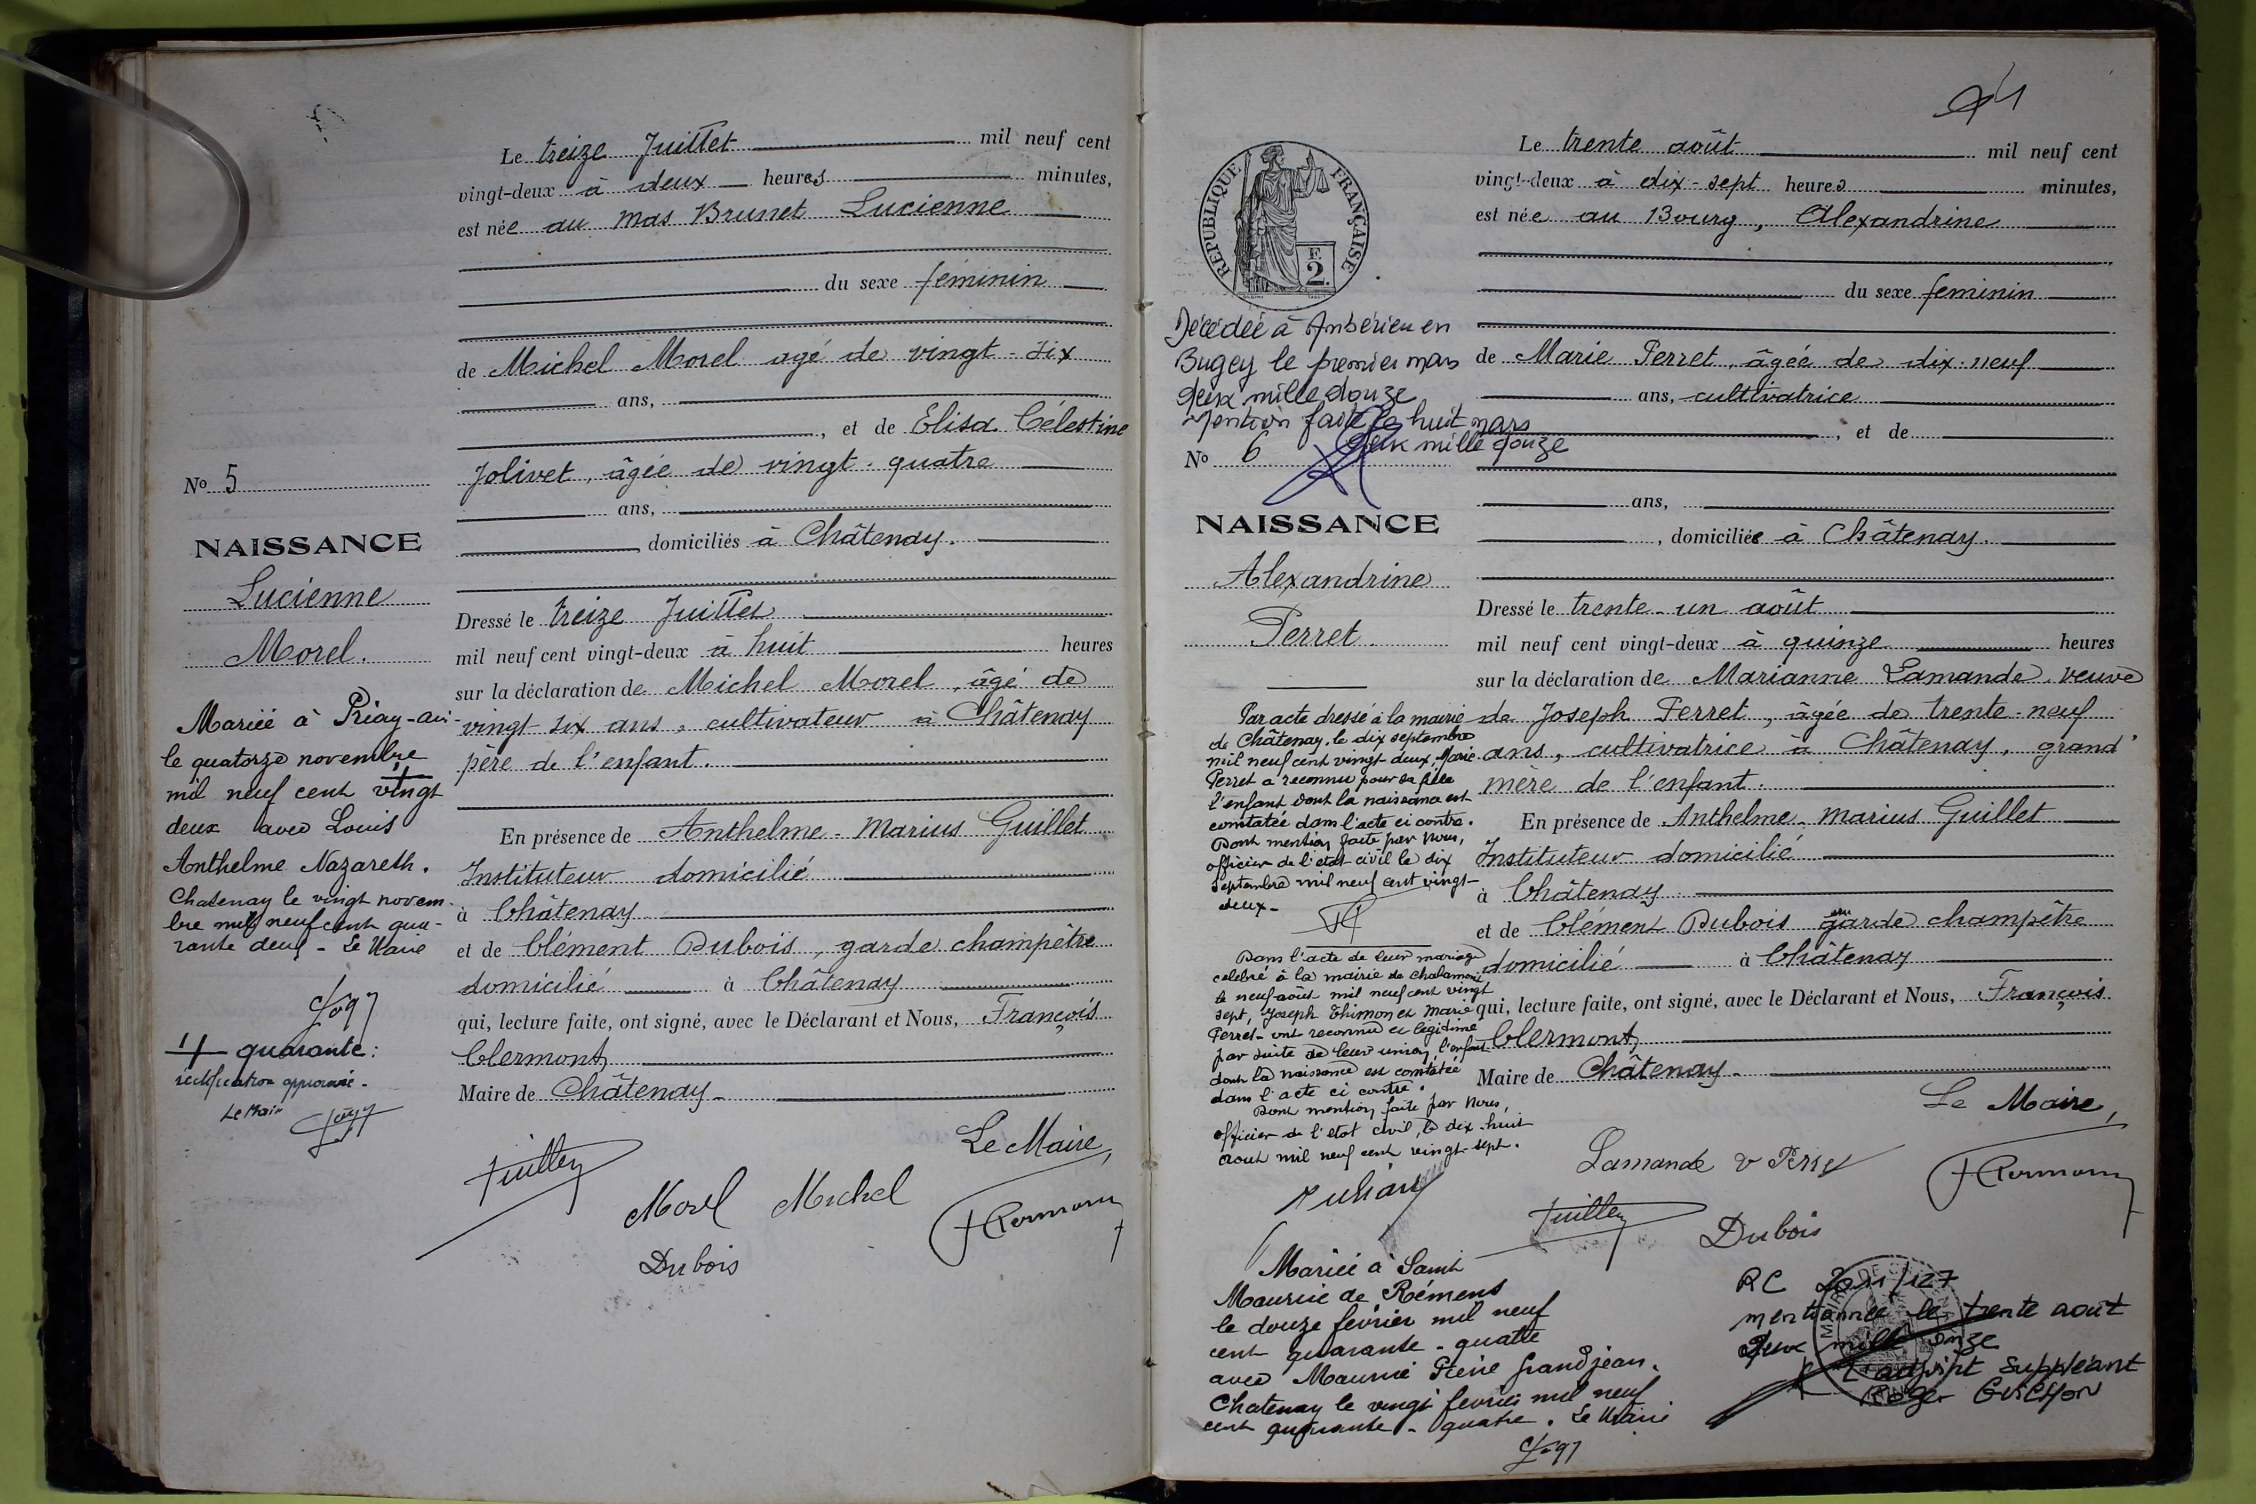 Le treize Juillet mil neuf cent
vingt-deux à deux heures minutes,
est née au mas Brunet Lucienne
du sexe féminin
de Michel Morel agé de vingt-six
ans,
, et de Elisa Célestine
Jolivet, âgée de vingt-quatre
ans,
domiciliés à Châtenay.
Dressé le treize Juillet
mil neuf cent vingt-deux à huit heures
sur la déclaration de Michel Morel, âgé de
vingt six ans, cultivateur à Châtenay
père de l'enfant.
En présence de Anthelme-Marius Guillet
Instituteur domicilié
à Châtenay
et de Clément Dubois, garde champêtre
domicilié à Châtenay
qui, lecture faite, ont signé, avec le Déclarant et Nous, François
Clermont
Maire de Châtenay
Le Maire,
Morel Michel
Dubois
No 5
NAISSANCE
Lucienne
Morel.
Mariée à Priay-Ain
le quatorze novembre
mil neuf cent vingt
deux avec Louis
Anthelme Nazareth.
Chatenay le vingt novem-
bre mil neuf cent qua-
rante deux - Le Maire
quarante:
rectification approuvée -
Le Maire
Le trente août mil neuf cent
vingt-deux à dix-sept heures minutes,
est née au Bourg, Alexandrine
du sexe feminin
de Marie Perret, âgée de dix-neuf
ans, cultivatrice
, et de
ans,
, domiciliée à Châtenay.
Dressé le trente-un août
mil neuf cent vingt-deux à quinze heures
sur la déclaration de Marianne Lamande, veuve
de Joseph Perret, âgée de trente-neuf
ans, cultivatrice à Châtenay, grand'
mère de l'enfant.
En présence de Anthelme-Marius Guillet
Instituteur domicilié
à Châtenay
et de Clément Dubois garde champêtre
domicilié à Châtenay
qui, lecture faite, ont signé, avec le Déclarant et Nous, François
Clermont
Maire de Châtenay
Le Maire,
Lamande
Dubois
RÉPUBLIQUE FRANÇAISE
2
Décédée à Ambérieu en
Bugey le premier mars
deux mille douze
Mention faite le huit mars
deux mille douze
No 6
NAISSANCE
Alexandrine
Perret.
Par acte dressé à la mairie
de Châtenay, le dix septembre
mil neuf cent vingt deux, Marie
Perret a reconnu pour sa fille
l'enfant dont la naissance est
constatée dans l'acte ci contre.
Dont mention faite par Nous,
officier de l'état civil le dix
septembre mil neuf cent vingt-
deux -
Dans l'acte de leur mariage
célébré à la mairie de Chalamont
le neuf août mil neuf cent vingt
sept, Joseph Thimonet Marie
Perret ont reconnu et légitimé
par suite de leur union, l'enfant
dont la naissance est constatée
dans l'acte ci contre.
Dont mention faite par Nous,
officier de l'état civil, le dix-huit
aout mil neuf cent vingt-sept.
Mariée à Saint
Maurice de Rémens
le douze février mil neuf
cent quarante-quatre
avec Maurice Pierre Grandjean.
Chatenay le vingt fevrier mil neuf
cent quarante-quatre. Le Maire
RC 2011/127
mentionnée le trente août
deux mille onze
L'adjoint suppléant
Roger GUICHON